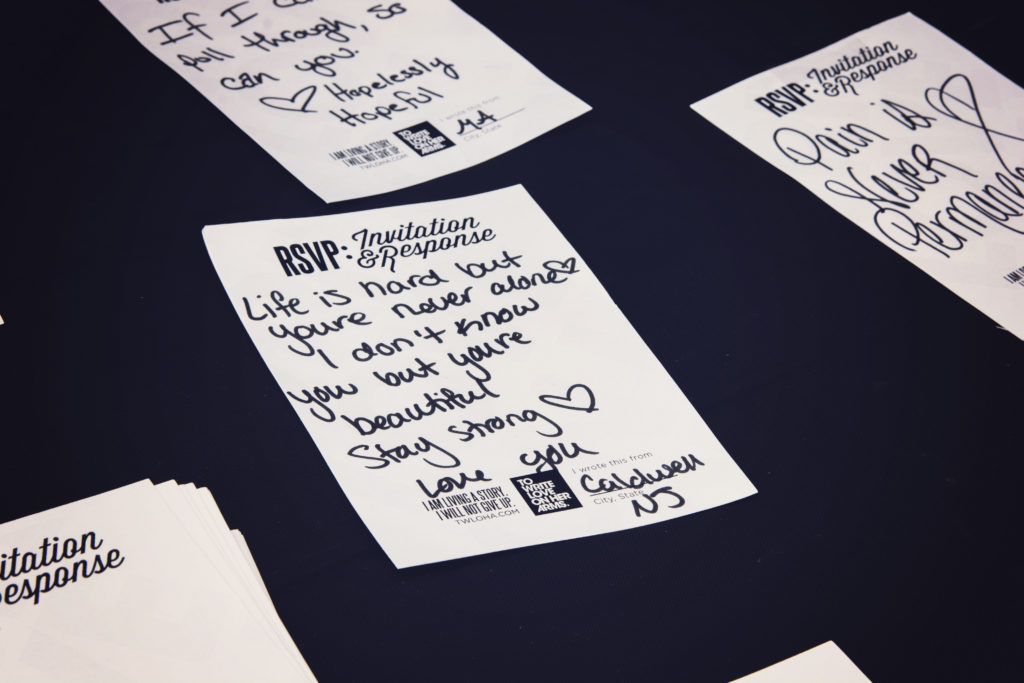 If I
fall through, so
can you.
♡ Hopelessly
Hopeful
I wrote this from
MA
City, State
I AM LIVING A STORY.
I WILL NOT GIVE UP.
TWLOHA.COM
TO
WRITE
LOVE
ON HER
ARMS.
RSVP: Invitation
& Response
Pain is
Never
RSVP: Invitation
& Response
Life is hard but
youre never alone♡
I don't know
you but you're
beautiful
Stay strong ♡
love you
I AM LIVING A STORY.
I WILL NOT GIVE UP.
TWLOHA.COM
TO
WRITE
LOVE
ON HER
ARMS.
I wrote this from
Caldwell
City, State
NJ